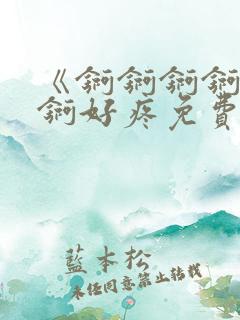 《錒錒錒錒
錒好疼免費
藍本松
未任同意禁止转载